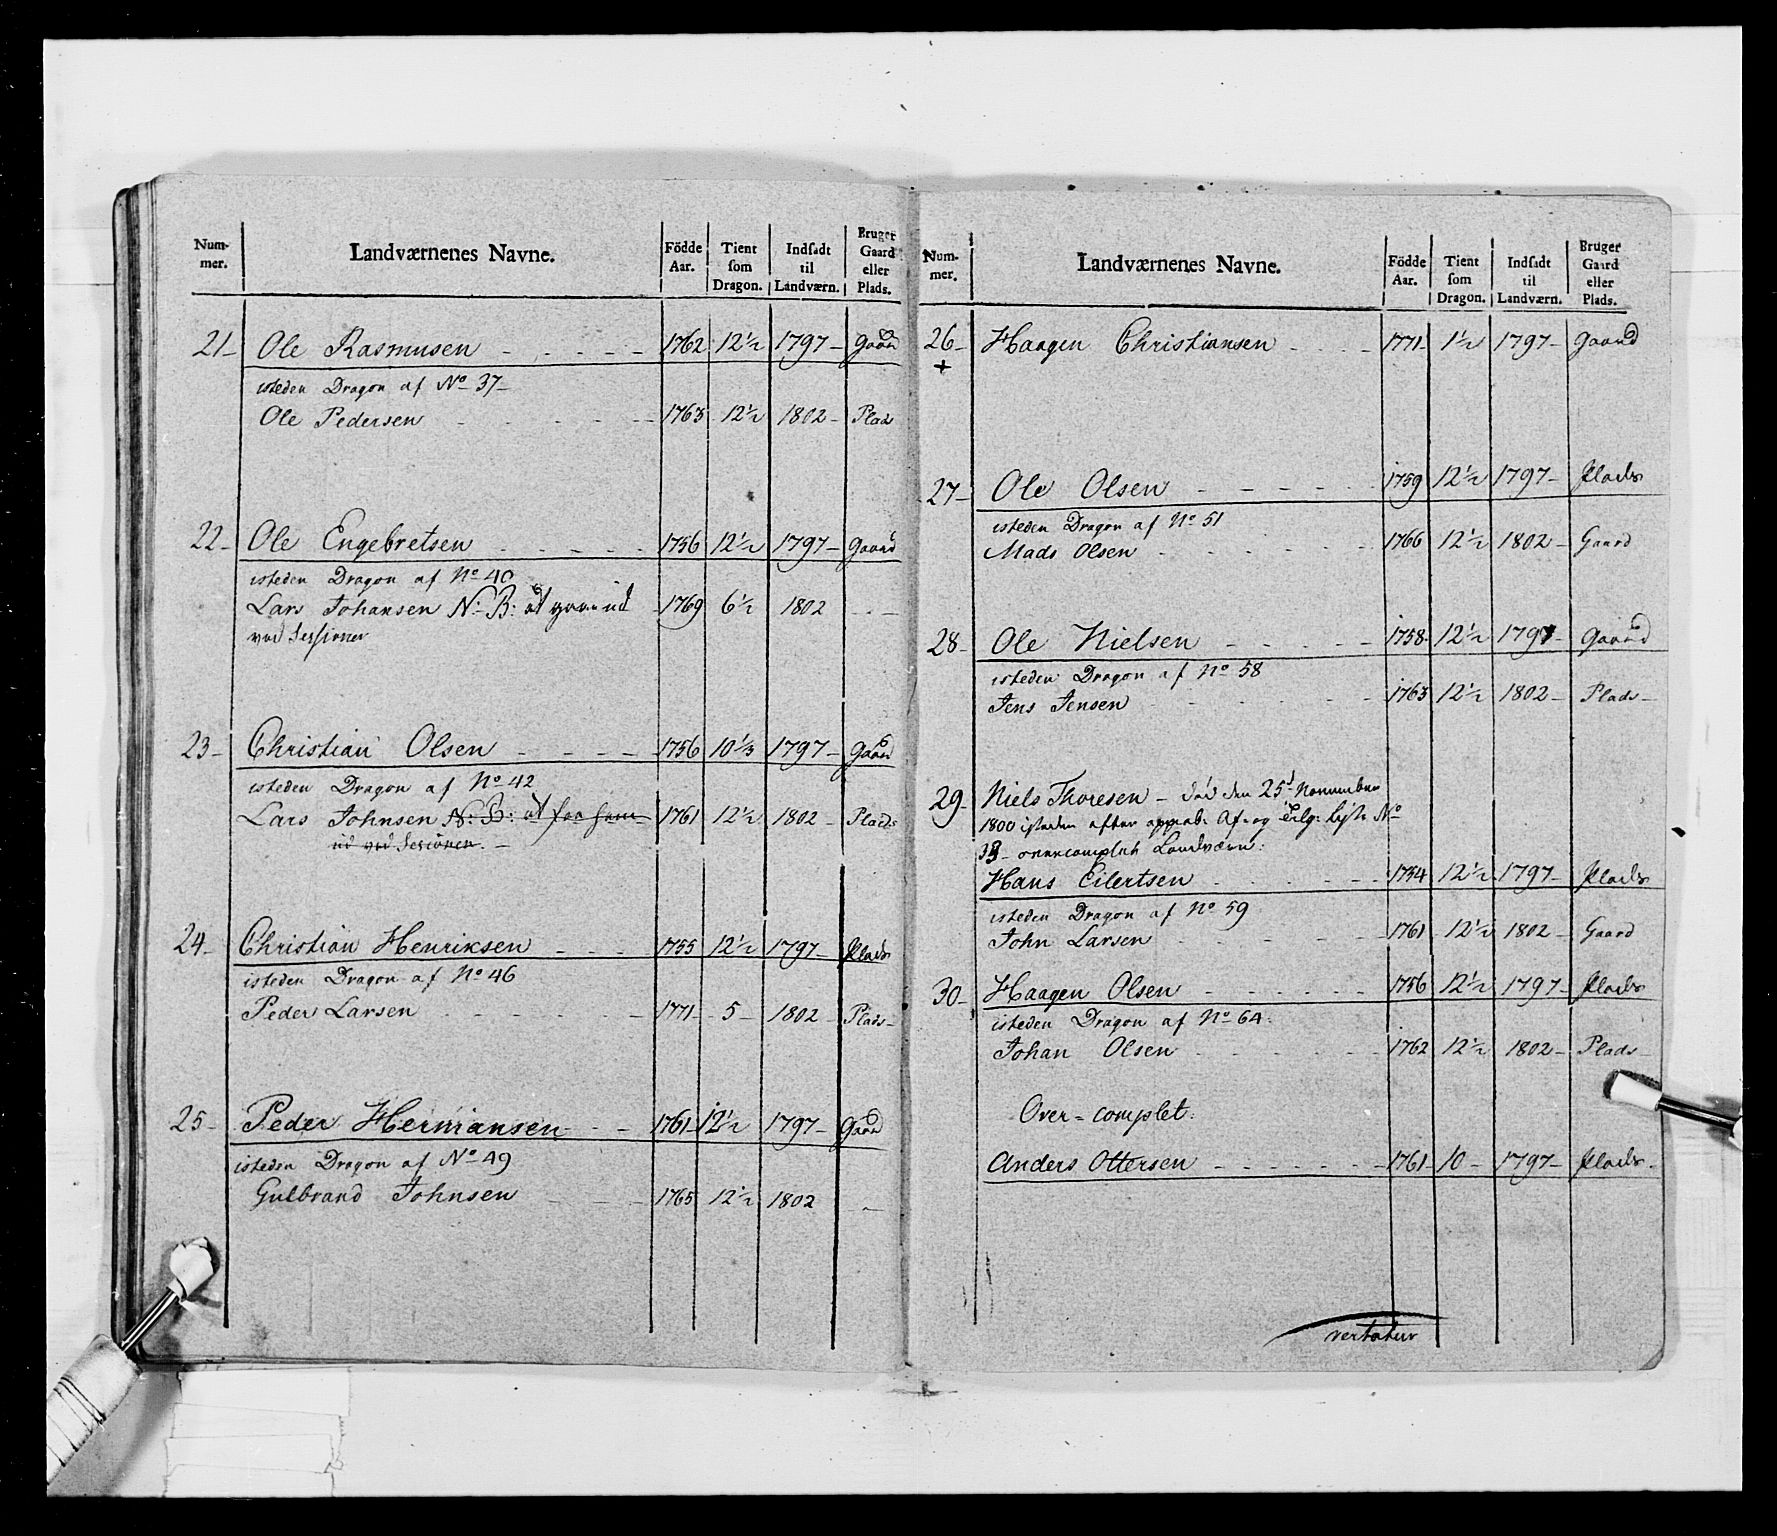 Num-mer. | Landværnenes Navne. | Födde Aar. | Tient som Dragon. | Indsadt til Landværn. | Bruger Gaard eller Plads.
21 - Ole Rasmusen - - - - 1762 12½ 1797 - Gaard
isteden Dragon af No 37 -
Ole Pedersen - - - - 1763 12½ 1802 - Plads
22 - Ole Engebretsen - - - - 1756 12½ 1797 - Gaard
isteden Dragon af No 40
Lars Johansen N: B: at gaae ud - 1769 6½ 1802 - -
ved Sessionen
23 - Christian Olsen - - - - 1756 10⅓ 1797 - Gaard
isteden Dragon af No 42
Lars Johnsen N: B: at faa ham 1761 12½ 1802 - Plads
ud ved Sesionen. -
24 - Christian Henriksen - - - 1755 12½ 1797 - Plads
isteden Dragon af No 46
Peder Larsen - - - - 1771 - 5 - 1802 - Plads -
25 - Peder Hermansen - - - 1761 12½ 1797 - Gaard
isteden Dragon af No 49
Gulbrand Johnsen - - - 1765 12½ 1802 -
Num-mer. | Landværnenes Navne. | Födde Aar. | Tient som Dragon. | Indsadt til Landværn. | Bruger Gaard eller Plads.
26 - Haagen Christiansen - - - 1771 - 1½ 1797 - Gaard
+
27 - Ole Olsen - - - - 1759 12½ 1797 - Plads
isteden Dragon af No 51
Mads Olsen - - - - 1766 12½ 1802 - Gaard
28 - Ole Nielsen - - - - 1758 - 12½ 1797 - Gaard
isteden Dragon af No 58
Jens Jensen - - - - 1763 12½ 1802 - Plads -
29 - Niels Thoresen - död den 25d November
1800 isteden efter approb: Af- og Tilg: Liste No
33 - overcomplet Landværn:
Hans Eilertsen - - - - 1754 12½ 1797 - Plads
isteden Dragon af No 59
John Larsen - - - - 1761 12½ 1802 - Gaard
30 - Haagen Olsen - - - - 1756 12½ 1797 - Plads
isteden Dragon af No 64.
Johan Olsen - - - - 1762 12½ 1802 - Plads -
Over-complet:
Anders Ottersen - - - - 1761 - 10 - 1797 - Plads -
vertatur